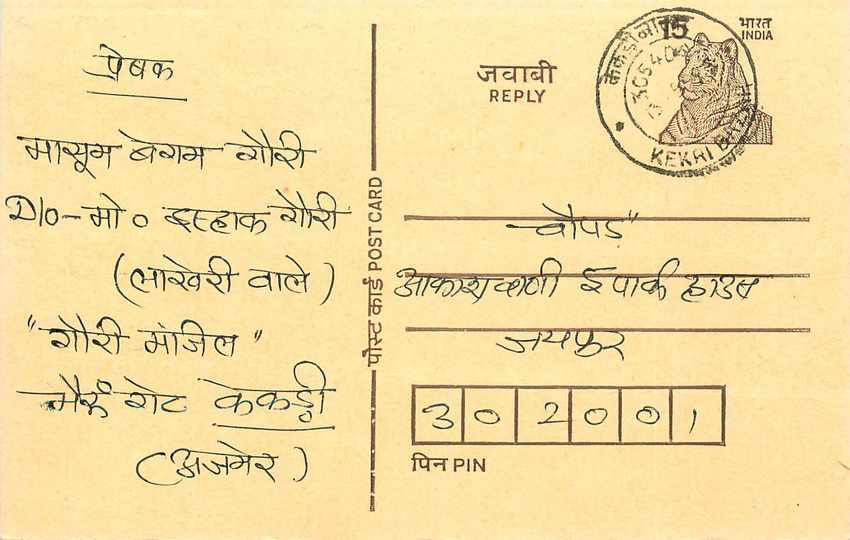 प्रेषक
मासूम बेगम गौरी
D/o - मो० इस्हाक गौरी
(लाखेरी वाले)
"गौरी मंजिल"
भैरूं गेट केकड़ी
(अजमेर)
पोस्ट कार्ड POST CARD
जवाबी
REPLY
15
भारत
INDIA
KEKRI
चौपड़"
आकाशवाणी ई पार्क हाउस
जयपुर
302001
पिन PIN